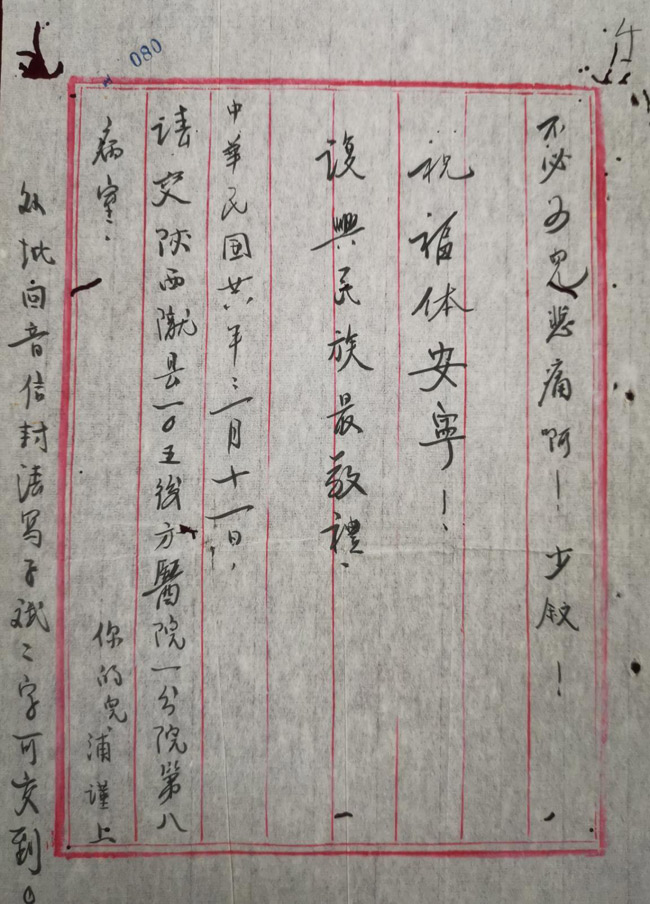 不必為兒悲痛啊！少敘！
祝福体安寧！
復興民族最敬禮．
中華民国廿六年三月十一日．
請交陝西隴县一〇五後方醫院一分院第八
病室．
你的兒浦謹上
回音信封法寫子斌二字可交到。
080